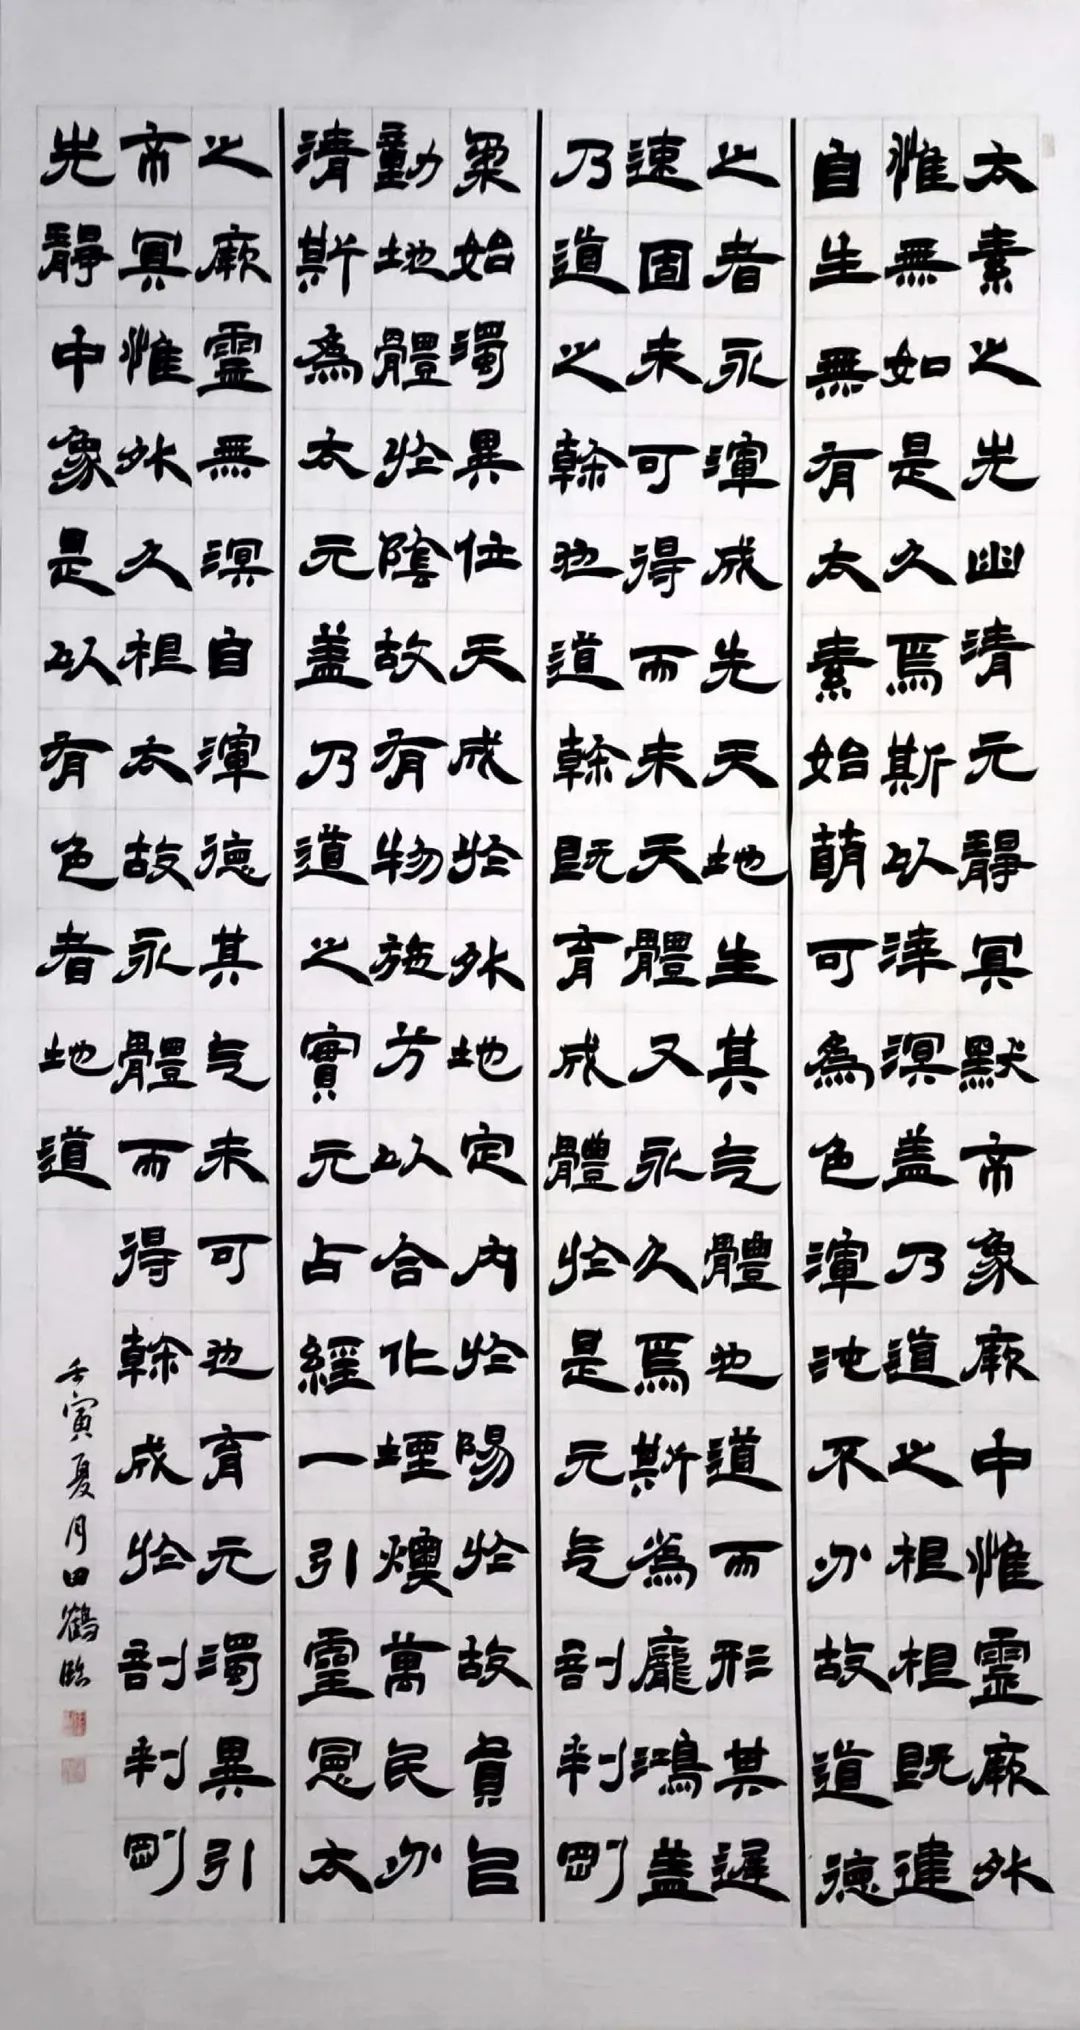 太素之先幽清元靜冥默帝象厥中惟靈厥外
惟無如是久焉斯以涬溟盖乃道之根根既建
自生無有太素始萌可為色渾沌不分故道德
之者永渾成先天地生其气體也道而形其遲
速固未可得而未天體又永久焉斯為龐鴻盖
乃道之幹也道幹既育成體於是元气剖判剛
柔始濁異位天成於外地定内於陽於故員以
動地體於陰故有物施方以合化堙燠萬民分
清斯為太元盖乃道之實元占經一引靈憲太
之厥靈無溟自渾德其气未可也育元濁異引
帝冥惟外久根太故永體而得幹成於剖判剛
先靜中象是以有色者地道
壬寅夏月田鶴臨